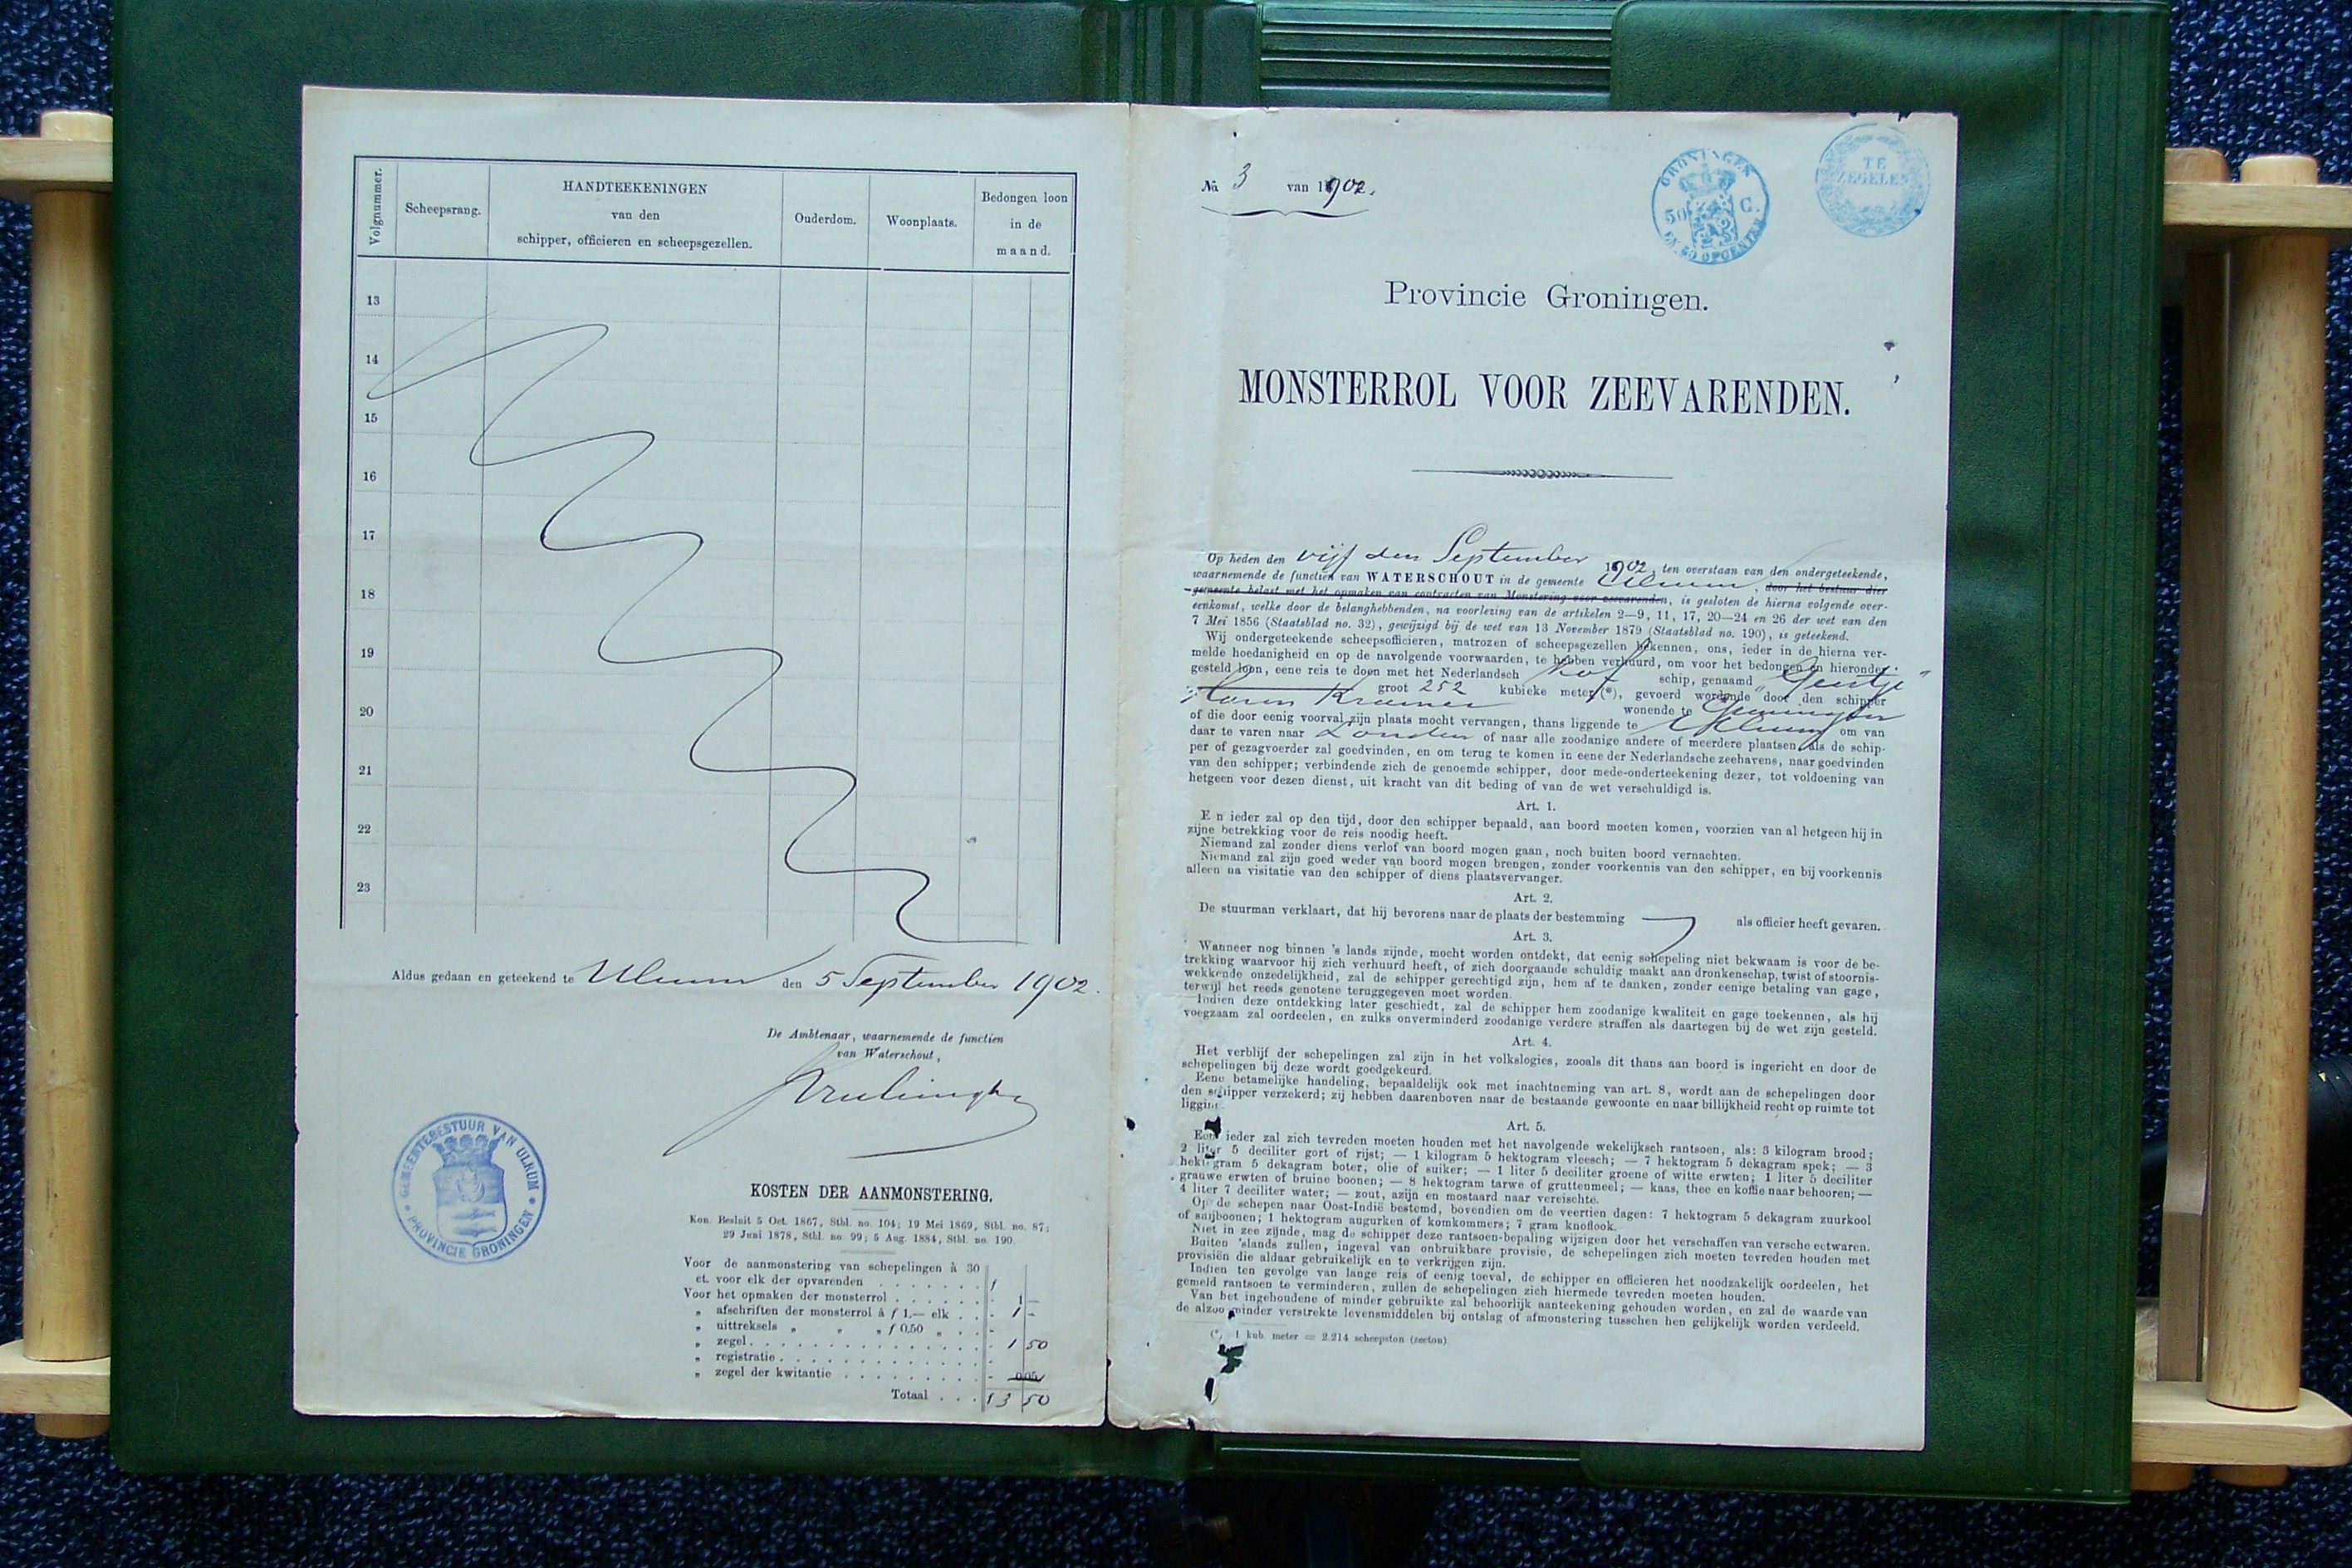 Volgnummer.
Scheepsrang.
HANDTEEKENINGEN
van den
schipper, officieren en scheepsgezellen.
Ouderdom.
Woonplaats.
Bedongen loon
in de
maand.
13
14
15
16
17
18
19
20
21
22
23
Aldus gedaan en geteekend te Ulrum den 5 September 1902.
De Ambtenaar, waarnemende de functien
van Waterschout,
GEMEENTEBESTUUR VAN ULRUM
PROVINCIE GRONINGEN
KOSTEN DER AANMONSTERING.
Kon. Besluit 5 Oct. 1867, Stbl. no. 104; 19 Mei 1869, Stbl. no. 87;
29 Juni 1878, Stbl. no. 99; 5 Aug. 1884, Stbl. no. 190.
Voor de aanmonstering van schepelingen à 30
ct. voor elk der opvarenden . . . . . . . f
Voor het opmaken der monsterrol . . . . . . - 1 —
„ afschriften der monsterrol à f 1.— elk . . - 1 -
„ uittreksels „ „ „ f 0.50 „ . . -
„ zegel . . . . . . . . . . . . . . . - 1 50
„ registratie . . . . . . . . . . . . . -
„ zegel der kwitantie . . . . . . . . . - 0.05
Totaal . . . f 3 50
No. 3 van 1902.
GRONINGEN
50 C.
EN 50 OPCENTEN
TE
ZEGELEN
Provincie Groningen.
MONSTERROL VOOR ZEEVARENDEN.
Op heden den vijf den September 1902, ten overstaan van den ondergeteekende,
waarnemende de functien van WATERSCHOUT in de gemeente Ulrum, door het bestuur dier
gemeente belast met het opmaken van contracten van Monstering voor zeevarenden, is gesloten de hierna volgende over-
eenkomst, welke door de belanghebbenden, na voorlezing van de artikelen 2—9, 11, 17, 20—24 en 26 der wet van den
7 Mei 1856 (Staatsblad no. 32), gewijzigd bij de wet van 13 November 1879 (Staatsblad no. 190), is geteekend.
Wij ondergeteekende scheepsofficieren, matrozen of scheepsgezellen bekennen, ons, ieder in de hierna ver-
melde hoedanigheid en op de navolgende voorwaarden, te hebben verhuurd, om voor het bedongen en hieronder
gesteld loon, eene reis te doen met het Nederlandsch kof schip, genaamd „Geertje"
groot 252 kubieke meter (*), gevoerd wordende door den schipper
Harm Kramer wonende te Groningen
of die door eenig voorval zijn plaats mocht vervangen, thans liggende te Ulrum om van
daar te varen naar Londen of naar alle zoodanige andere of meerdere plaatsen als de schip-
per of gezagvoerder zal goedvinden, en om terug te komen in eene der Nederlandsche zeehavens, naar goedvinden
van den schipper; verbindende zich de genoemde schipper, door mede-onderteekening dezer, tot voldoening van
hetgeen voor dezen dienst, uit kracht van dit beding of van de wet verschuldigd is.
Art. 1.
E n ieder zal op den tijd, door den schipper bepaald, aan boord moeten komen, voorzien van al hetgeen hij in
zijne betrekking voor de reis noodig heeft.
Niemand zal zonder diens verlof van boord mogen gaan, noch buiten boord vernachten.
Niemand zal zijn goed weder van boord mogen brengen, zonder voorkennis van den schipper, en bij voorkennis
alleen na visitatie van den schipper of diens plaatsvervanger.
Art. 2.
De stuurman verklaart, dat hij bevorens naar de plaats der bestemming als officier heeft gevaren.
Art. 3.
Wanneer nog binnen 's lands zijnde, mocht worden ontdekt, dat eenig schepeling niet bekwaam is voor de be-
trekking waarvoor hij zich verhuurd heeft, of zich doorgaande schuldig maakt aan dronkenschap, twist of stoornis-
wekkende onzedelijkheid, zal de schipper gerechtigd zijn, hem af te danken, zonder eenige betaling van gage,
terwijl het reeds genotene teruggegeven moet worden.
Indien deze ontdekking later geschiedt, zal de schipper hem zoodanige kwaliteit en gage toekennen, als hij
voegzaam zal oordeelen, en zulks onverminderd zoodanige verdere straffen als daartegen bij de wet zijn gesteld.
Art. 4.
Het verblijf der schepelingen zal zijn in het volkslogies, zooals dit thans aan boord is ingericht en door de
schepelingen bij deze wordt goedgekeurd.
Eene betamelijke handeling, bepaaldelijk ook met inachtneming van art. 8, wordt aan de schepelingen door
den schipper verzekerd; zij hebben daarenboven naar de bestaande gewoonte en naar billijkheid recht op ruimte tot
ligging.
Art. 5.
Een ieder zal zich tevreden moeten houden met het navolgende wekelijksch rantsoen, als: 3 kilogram brood;
2 liter 5 deciliter gort of rijst; — 1 kilogram 5 hektogram vleesch; — 7 hektogram 5 dekagram spek; — 3
hektogram 5 dekagram boter, olie of suiker; — 1 liter 5 deciliter groene of witte erwten; 1 liter 5 deciliter
grauwe erwten of bruine boonen; — 8 hektogram tarwe of gruttenmeel; — kaas, thee en koffie naar behooren; —
4 liter 7 deciliter water; — zout, azijn en mostaard naar vereischte.
Op de schepen naar Oost-Indië bestemd, bovendien om de veertien dagen: 7 hektogram 5 dekagram zuurkool
of snijboonen; 1 hektogram augurken of komkommers; 7 gram knoflook.
Niet in zee zijnde, mag de schipper deze rantsoen-bepaling wijzigen door het verschaffen van versche eetwaren.
Buiten 'slands zullen, ingeval van onbruikbare provisie, de schepelingen zich moeten tevreden houden met
provisiën die aldaar gebruikelijk en te verkrijgen zijn.
Indien ten gevolge van lange reis of eenig toeval, de schipper en officieren het noodzakelijk oordeelen, het
gemeld rantsoen te verminderen, zullen de schepelingen zich hiermede tevreden moeten houden.
Van het ingehoudene of minder gebruikte zal behoorlijk aanteekening gehouden worden, en zal de waarde van
de alzoo minder verstrekte levensmiddelen bij ontslag of afmonstering tusschen hen gelijkelijk worden verdeeld.
(*) 1 kub. meter = 2.214 scheepston (zeeton).